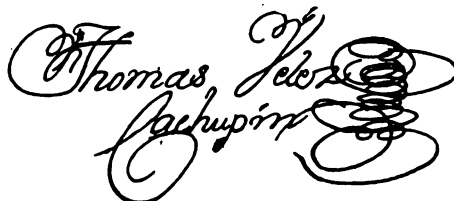 Thomas Velez
Cachupin